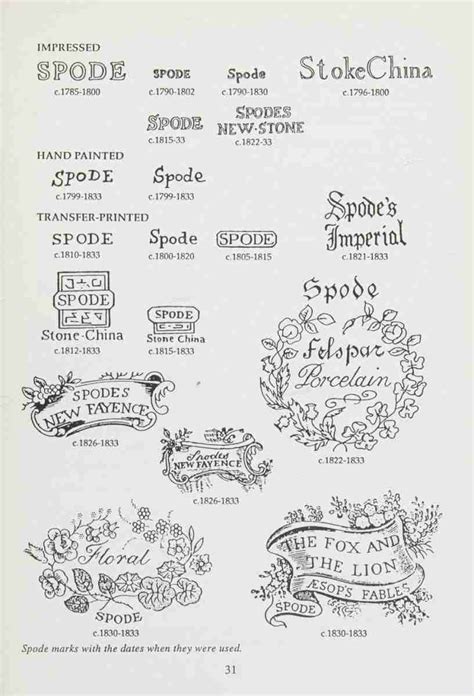 IMPRESSED
SPODE SPODE Spode Stoke China
c.1785-1800 c.1790-1802 c.1790-1830 c.1796-1800
SPODE SPODES NEW·STONE
c.1815-33 c.1822-33
HAND PAINTED
SPODE Spode
c.1799-1833 c.1799-1833
TRANSFER-PRINTED
SPODE Spode SPODE Spode's Imperial
c.1810-1833 c.1800-1820 c.1805-1815 c.1821-1833
SPODE
Stone-China
c.1812-1833
SPODE
Stone China
c.1815-1833
Spode
Felspar
Porcelain
c.1822-1833
SPODE'S
NEW FAYENCE
c.1826-1833
Spodes
NEW FAYENCE
c.1826-1833
Floral
SPODE
c.1830-1833
THE FOX AND
THE LION
ÆSOP'S FABLES
SPODE
c.1830-1833
Spode marks with the dates when they were used.
31